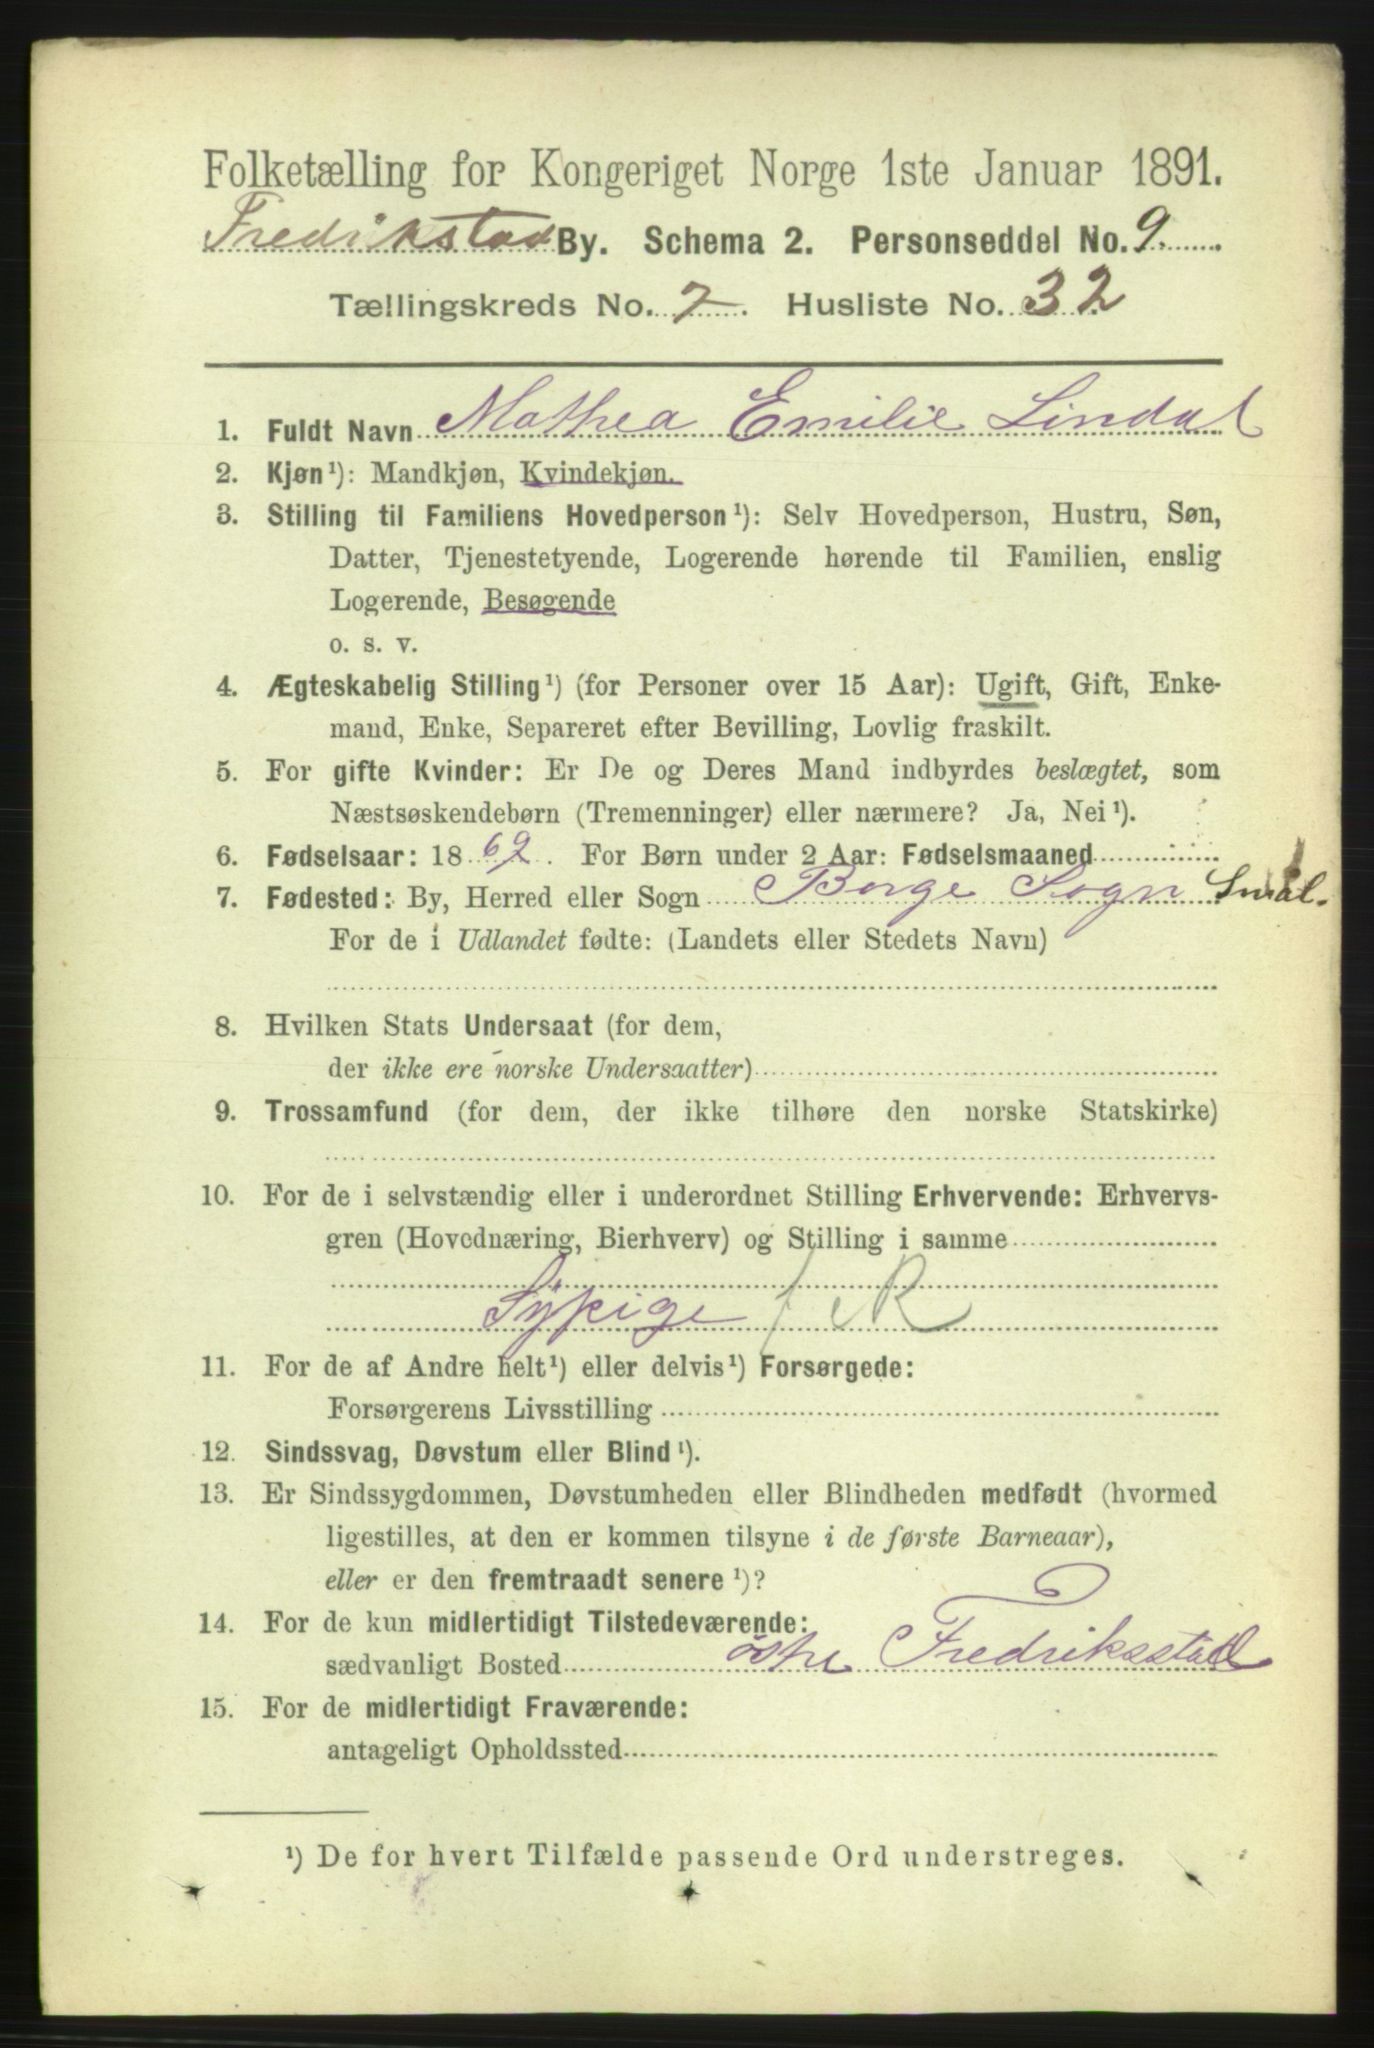 Folketælling for Kongeriget Norge 1ste Januar 1891.
Fredrikstad By. Schema 2. Personseddel No. 9.
Tællingskreds No. 7. Husliste No. 32
1. Fuldt Navn Mathea Emilie Lindal
2. Kjøn¹): Mandkjøn, Kvindekjøn.
3. Stilling til Familiens Hovedperson¹): Selv Hovedperson, Hustru, Søn,
Datter, Tjenestetyende, Logerende hørende til Familien, enslig
Logerende, Besøgende
o. s. v.
4. Ægteskabelig Stilling¹) (for Personer over 15 Aar): Ugift, Gift, Enke-
mand, Enke, Separeret efter Bevilling, Lovlig fraskilt.
5. For gifte Kvinder: Er De og Deres Mand indbyrdes beslægtet, som
Næstsøskendebørn (Tremenninger) eller nærmere? Ja, Nei¹).
6. Fødselsaar: 1869. For Børn under 2 Aar: Fødselsmaaned
7. Fødested: By, Herred eller Sogn Borge Sogn Smål.
For de i Udlandet fødte: (Landets eller Stedets Navn)
8. Hvilken Stats Undersaat (for dem,
der ikke ere norske Undersaatter)
9. Trossamfund (for dem, der ikke tilhøre den norske Statskirke)
10. For de i selvstændig eller i underordnet Stilling Erhvervende: Erhvervs-
gren (Hovednæring, Bierhverv) og Stilling i samme
Sÿpige / R
11. For de af Andre helt¹) eller delvis¹) Forsørgede:
Forsørgerens Livsstilling
12. Sindssvag, Døvstum eller Blind¹).
13. Er Sindssygdommen, Døvstumheden eller Blindheden medfødt (hvormed
ligestilles, at den er kommen tilsyne i de første Barneaar),
eller er den fremtraadt senere¹)?
14. For de kun midlertidigt Tilstedeværende:
sædvanligt Bosted østre Fredriksstad
15. For de midlertidigt Fraværende:
antageligt Opholdssted
¹) De for hvert Tilfælde passende Ord understreges.